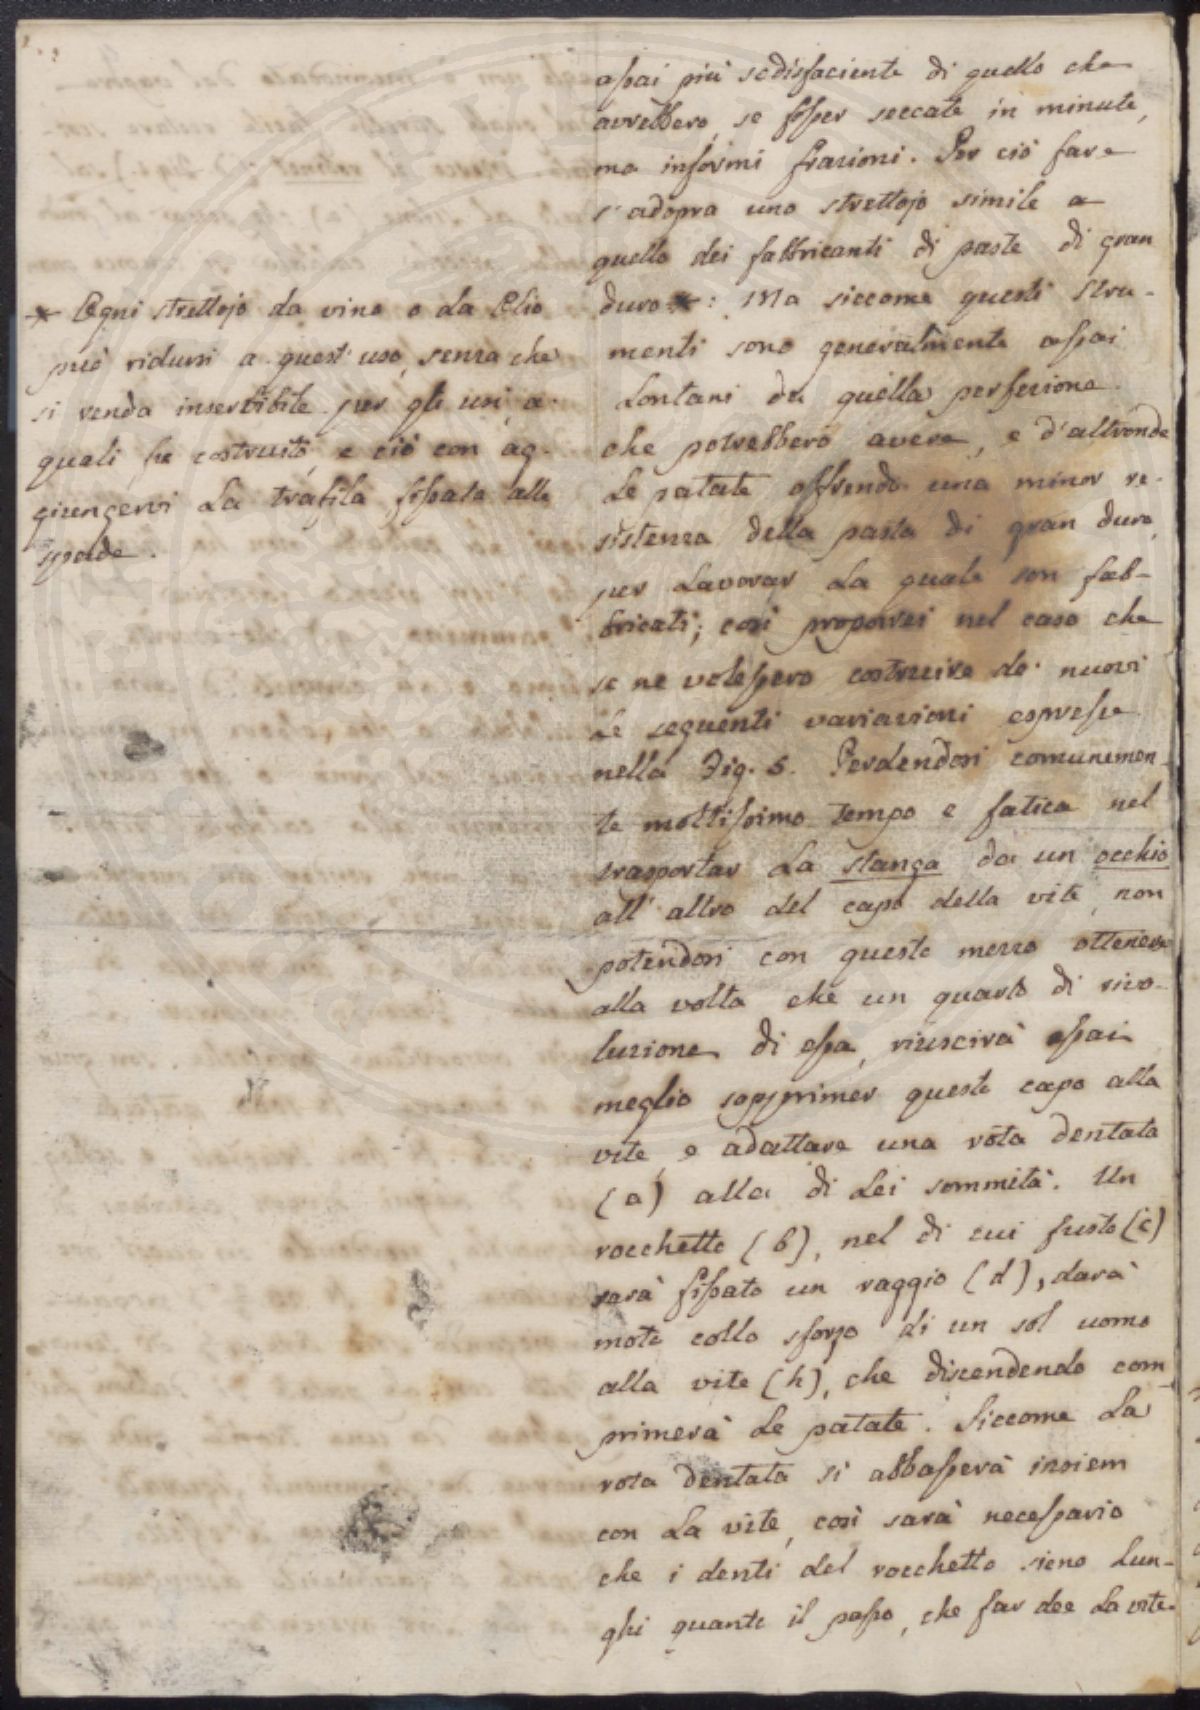 assai più sodisfacente di quello che
avrebbero, se fosser seccate in minute,
ma informi frazioni. Per ciò fare
s'adopra uno strettojo simile a
quello dei fabbricanti di paste di gran
duro *: Ma siccome questi stru-
menti sono generalmente assai
Lontani da quella perfezione
che potrebbero avere, e d'altronde
Le patate offrendo una minor re-
sistenza della pasta di gran duro,
per Lavorar La quale son fab-
bricati; così proporrei nel caso che
se ne volessero costruire de' nuovi
Le seguenti variazioni espresse
nella Fig. 5. Perdendosi comunemen-
te moltissimo tempo e fatica nel
trasportar La stanga da un occhio
all'altro del capo della vite, non
potendosi con questo mezzo ottenere
alla volta che un quarto di rivo-
luzione di essa, riuscirà assai
meglio sopprimer questo capo alla
vite, e adattare una rota dentata
(a) alla di Lei sommità. Un
rocchetto (b), nel di cui fusto (c)
sarà fissato un raggio (d), darà
moto collo sforzo di un sol uomo
alla vite (h), che discendendo com
primerà Le patate. Siccome La
rota dentata si abbasserà insiem
con La vite, così sarà necessario
che i denti del rocchetto sieno Lun-
ghi quanto il passo, che far dee La vite.
* Ogni strettojo da vino o da Olio
può ridursi a quest'uso, senza che
si renda inservibile per gli usi, a'
quali fu costruito, e ciò con ag-
giungervi La trafila fissata alle
spade.